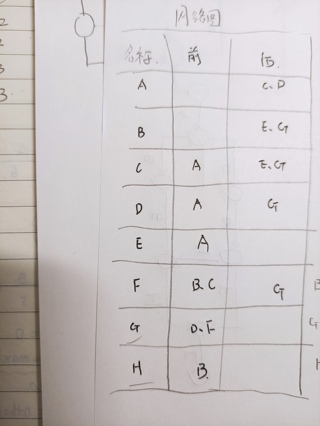 网络图
名称 前 后
A C、D
B E、G
C A E、G
D A G
E A
F B、C G
G D、F
H B